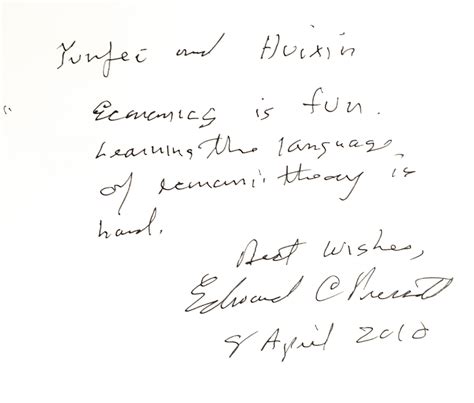 Yunfei and Huixin
Economics is fun.
Learning the language
of economic theory is
hard.
Best Wishes,
Edward C Prescott
8 April 2010